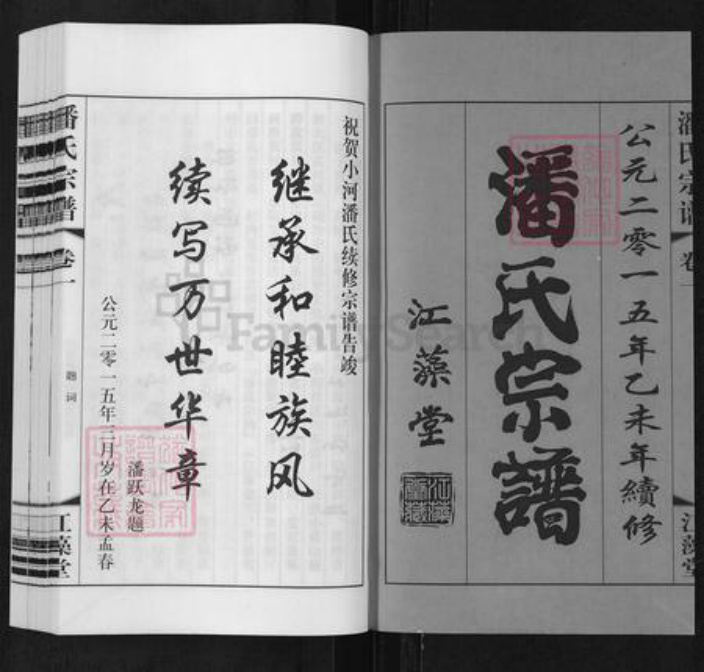 潘氏宗谱
卷一
江藻堂
公元二零一五年乙未年續修
潘氏宗譜
江藻堂
祝贺小河潘氏续修宗谱告竣
继承和睦族风
续写万世华章
潘跃龙题
公元二零一五年三月岁在乙未孟春
潘氏宗谱
卷一
题词
江藻堂
FamilySearch